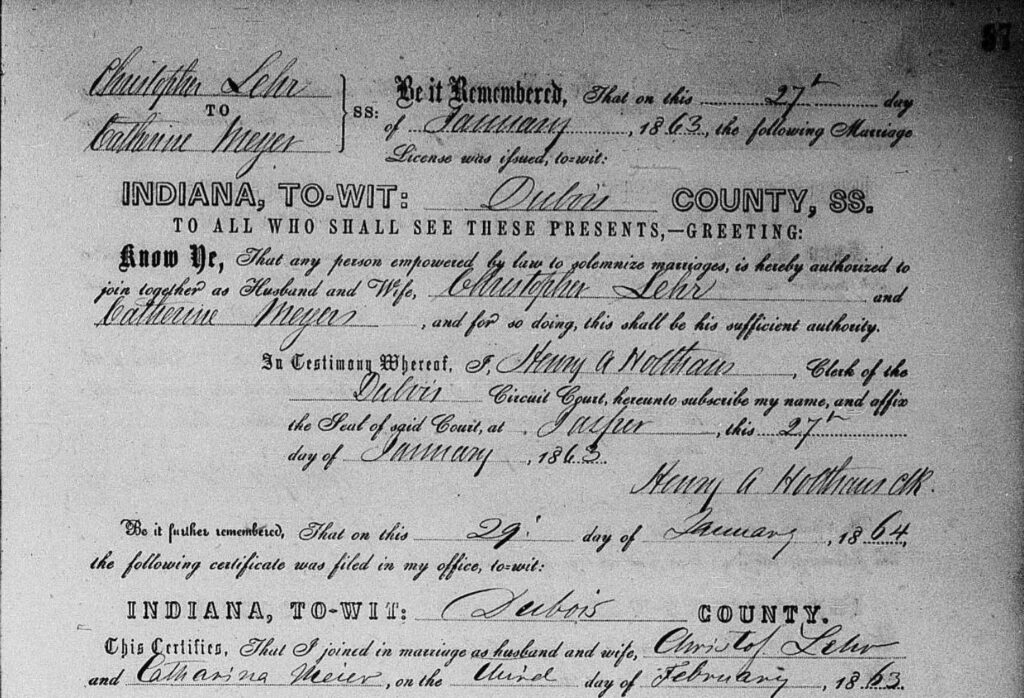 87
Christopher Lehr
TO
Catherine Meyer
SS:
Be it Remembered, That on this 27th day
of January, 1863, the following Marriage
License was issued, to-wit:
INDIANA, TO-WIT: Dubois COUNTY, SS.
TO ALL WHO SHALL SEE THESE PRESENTS,—GREETING:
Know Ye, That any person empowered by law to solemnize marriages, is hereby authorized to
join together as Husband and Wife, Christopher Lehr and
Catherine Meyers, and for so doing, this shall be his sufficient authority.
In Testimony Whereof, I, Henry A Holthaus, Clerk of the
Dubois Circuit Court, hereunto subscribe my name, and affix
the Seal of said Court, at Jasper, this 27th
day of January, 1863.
Henry A Holthaus Clk.
Be it further remembered, That on this 29 day of January, 1864,
the following certificate was filed in my office, to-wit:
INDIANA, TO-WIT: Dubois COUNTY.
This Certifies, That I joined in marriage as husband and wife, Christof Lehr
and Catharina Meier, on the third day of February, 1863.